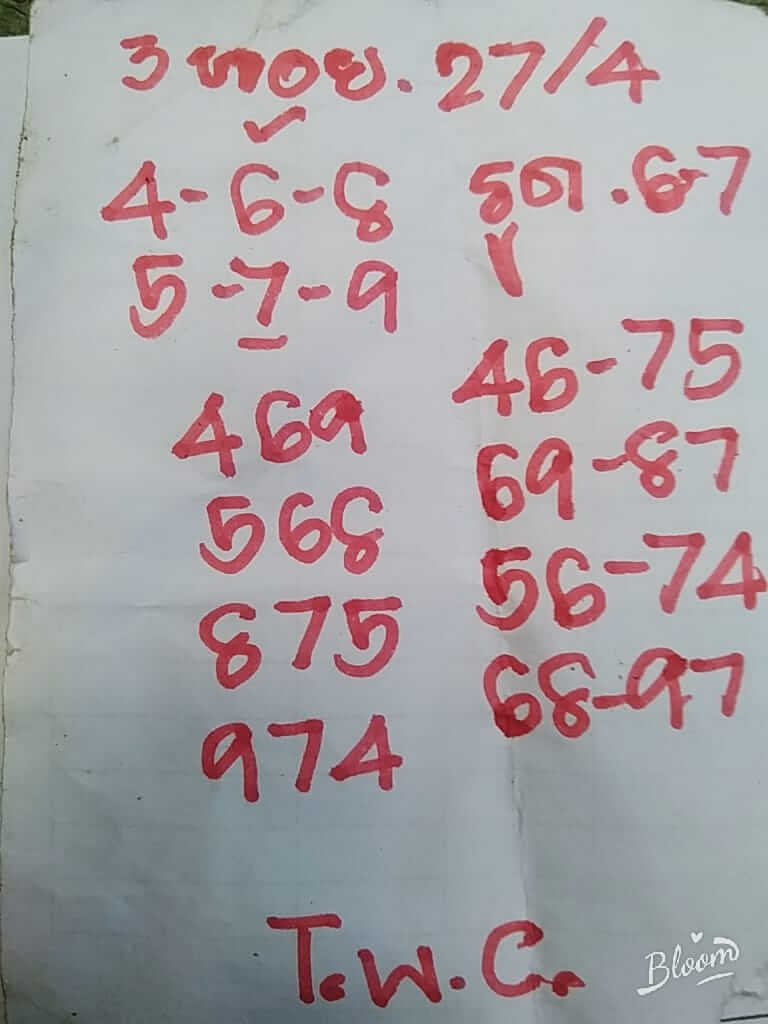 3 หอย. 27/4
4-6-8
5-7-9
469
568
875
974
รูด.6-7
46-75
69-87
56-74
68-97
T.W.C.
Bloom